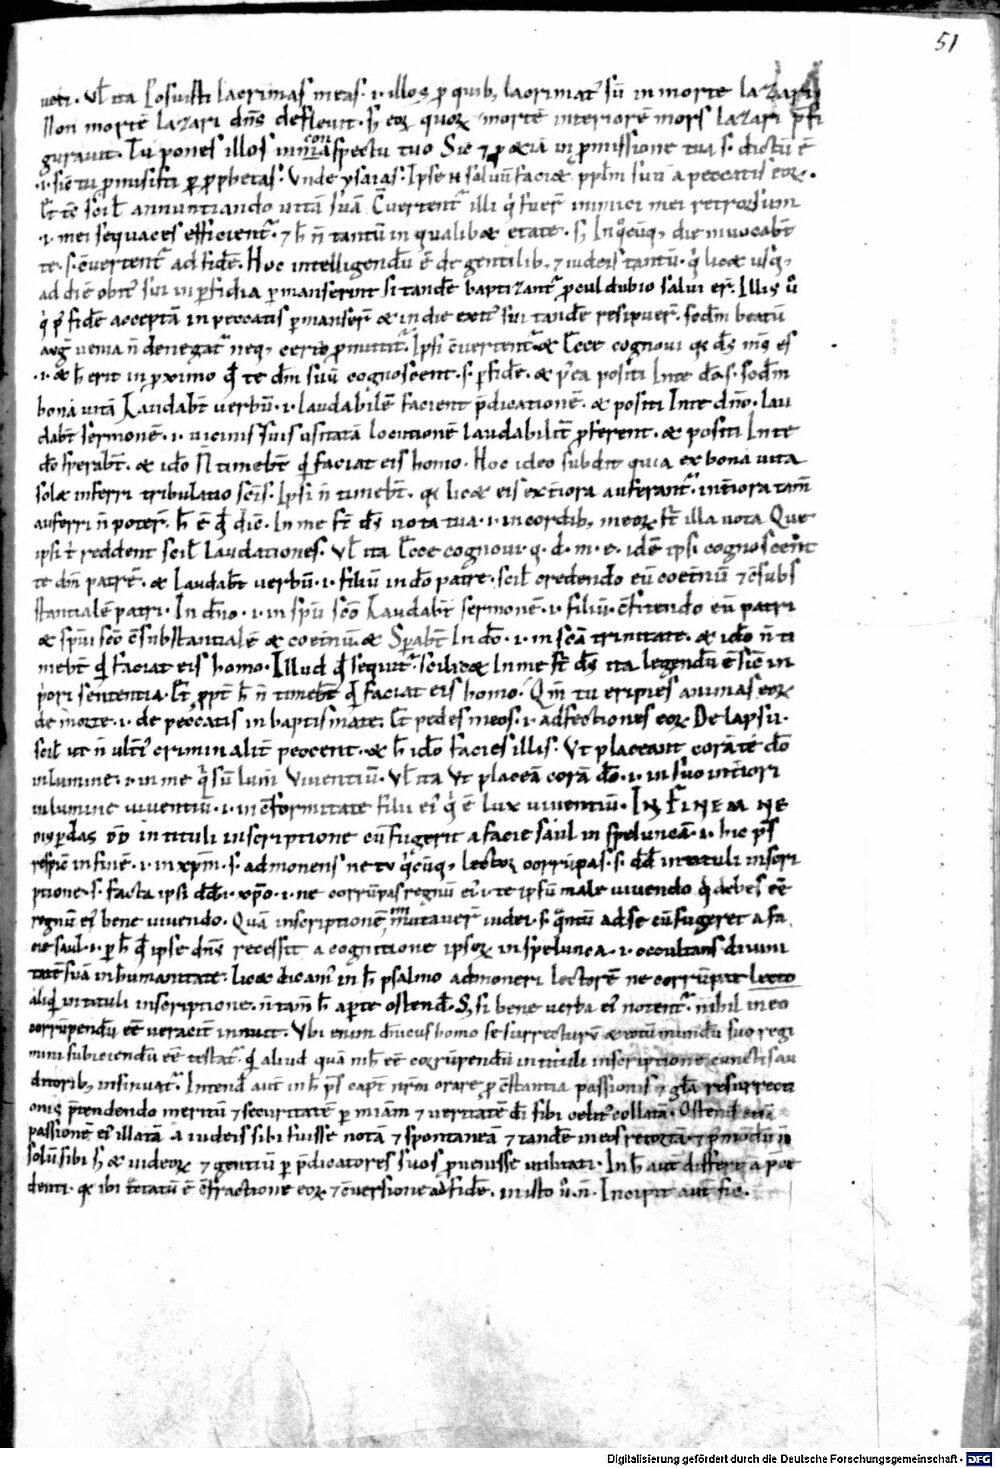 51
uoti. Vł ita Posuisti lacrimas meas .i. illos p quib; lacrimatꝰ sū in morte lazari
Non mortē lazari dn̄s defleuit. s; eoꝝ quoꝝ mortē interiorē mors lazari p̄fi
gurauit. Tu pones illos in conspectu tuo Sic & in pmissione tua s. dictū ē
.i. sic tu pmisisti p pphetas. Vnde ysaias. Ipse saluū faciæ pplm̄ suū a peccatis eoꝝ.
scił annuntiando uitā suā. Cuertentˀ illi q̇ fuer̄ inimici mei retrorsum
.i. mei sequaces efficientˀ. ⁊ h̄ n̄ tantū in qualibæ etate. s; In q̊cūq; die inuocab̄t
te. s. cuertentˀ ad fidē. Hoc intelligendū ē de gentilib; ⁊ iudeis tantū. q̇ licæ usq;
ad diē obitꝰ sui in pfidia pmanserint si tandē baptizantˀ pcul dubio salui er̄. Illis ů
q̇ p̄ fidē acceptā in peccatis pmanser̄ & in die exitꝰ sui tandē resipuer̄. sc̄dm beatū
aug̃ uenia n̄ denegatˀ neq; certe pmittitˀ. Ipsi cuertentˀ & Ecce cognoui q̄ ds̄ mꝰ es
.i. & h̄ erit in pximo q̄ te dm̄ suū cognoscent .s. p fidē. & p̄ea positi In te do .s. sc̄dm
bonā uitā Laudab̄t uerbū .i. laudabilē facient p̄dicationē. & positi In te dn̄o. Lau
dab̄t sermonē .i. uicinis suis usitatā locutionē laudabilit̄ pferent. & positi In te
do sperab̄t. & ido N̄ timeb̄t q̄ faciat eis homo. Hoc ideo subdit quia ex bona uita
solæ inferri tribulatio scis. Ipsi n̄ timeb̄t. q̄ licæ eis ext̄iora auferantˀ. int̄iora tam̄
auferri n̄ poter̄. h̄ ē q̄ dic̄. In me st̄ ds̄ uota tua .i. in cordib; meoꝝ st̄ illa uota Que
ipsi t̄ reddent scił Laudationes. Vł ita Ecce cognoui. q. d. m. e. idē ipsi cognoscent
te dm̄ patrē. & Laudab̄t uerbū .i. filiū in do patre. scił credendo eū coetnū ⁊ c̄subs
stantialē patri. In dn̄o .i. in spū sc̄o Laudab̄t sermonē .i. filiū. c̄fitendo eū patri
& spiui sc̄o c̄substantialē & coetnū. & Sperab̄t In do .i. in sc̄a trinitate. & ido n̄ ti
meb̄t q̄ faciat eis homo. Illud q̄ sequitˀ. scilicæ In me st̄ ds̄ ita legendū ē sic in
p̄ori sententia. Et ppt̄ h̄ n̄ timeb̄t q̄ faciat eis homo. Qm̄ tu eripies animas eoꝝ
de morte .i. de peccatis in baptismate. Et pedes meos .i. adfectiones eoꝝ De lapsu.
scił ut n̄ ultꝰ criminalit̄ peccent. & h̄ ido facies illis. Vt placeant corā te do
in lumine .i. in me q̇ sū lum̄ Viuentiū. Vł ita Vt placeā corā do .i. in suo int̄iori
in lumine uiuentiū .i. in c̄formitate filii eiꝰ q̇ ē lux uiuentiū. IN FINEM NE
Disperdas DD in tituli inscriptione cū fugerit a facie saul in speluncā .i. hic ps̄
respic̄ in finē .i. in xpm̄ .s. admonens ne tu q̇cūq; lector corrūpas .s. dd̄ in tituli inscri
ptione .s. facta ipsi dd̄ .i. xpo .i. ne corrūpas regnū eiꝰ .i. te ipsū male uiuendo q̇ debes eē
regnū eiꝰ bene uiuendo. Quā inscriptionē inmutauer̄ iudei .s. q̄ntū ad se cū fugeret a fa
cie saul .i. p h̄ q̄ ipse dn̄s recessit a cognitione ipsoꝝ in spelunca .i. occultans diuini
tatē suā in humanitate. licæ dicamꝰ in h̄ psalmo admoneri lectorē ne corrūpat lecto
aliq̇d in tituli inscriptione. n̄ tam̄ h̄ apte ostend̄. S; si bene uerba eiꝰ notentˀ. nihil in eo
corrūpendū eē ueracit̄ innuit. Vbi enim dn̄icus homo se surrecturū & totū mundū suo regi
mini subiciendū eē testatˀ. q̇d aliud quā nih̄ eē corrūpendū in tituli inscriptione cunctis au
ditorib; insinuatˀ. Intend̄ aut̄ in h̄ ps̄ capt̄ nr̄m orare p c̄stantia passionis ⁊ gła resurrecti
onis p̄tendendo meritū ⁊ securitatē p miām ⁊ ueritatē di sibi celitꝰ collatā. Ostend̄ etiā
passionē eiꝰ illatā a iudeis sibi fuisse notā ⁊ spontaneā ⁊ tandē in eos retortā
solū sibi s; & iudeoꝝ ⁊ gentiū p p̄dicatores suos puenisse utilitati. In h̄ aut̄ differt a p̄ce
denti. q̄ ibi t̄ctatū ē c̄tractione eoꝝ ⁊ c̄uersione ad fidē. in isto ů n̄. Incipit aut̄ sic.
Digitalisierung gefördert durch die Deutsche Forschungsgemeinschaft - DFG